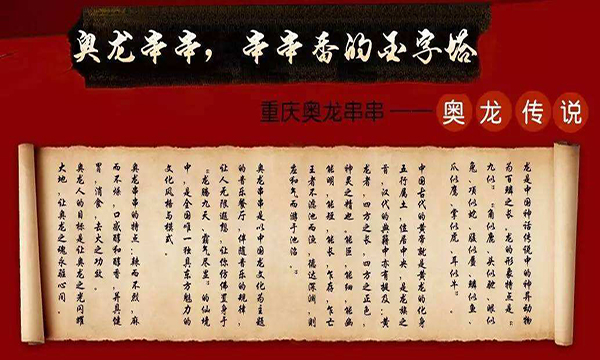 奥龙串串，串串香的金字塔
重庆奥龙串串——奥龙传说
龙是中国神话传说中的神异动物
为百鳞之长，龙的形象特点是“
九似”：角似鹿、头似驼、眼似
兔、项似蛇、腹似蜃、鳞似鱼、
爪似鹰、掌似虎、耳似牛。
中国古代的黄帝就是黄龙的化身
五行属土，位居中央，是龙族之
首，汉代的典籍中亦有提及：黄
龙者，四方之长，四方之正色，
神灵之精也，能巨，能细，能幽
能明，能短，能长，乍存，乍亡
王者不漉池而渔，德达深渊，则
应和气而游于池沼。
奥龙串串是以中国龙文化为主题
的音乐餐厅，伴随音乐的规律，
让人无限遐想，让你仿佛置身于
“龙腾九天，霸气尽显”的仙境
中，是全国唯一独具东方魅力的
文化风格与模式。
奥龙串串的特点：辣而不烈，麻
而不燥，口感醇和醇香，并具健
胃，消食，去火之功效。
奥龙人的目标是让奥龙之光闪耀
大地，让奥龙之魂永驻心间。